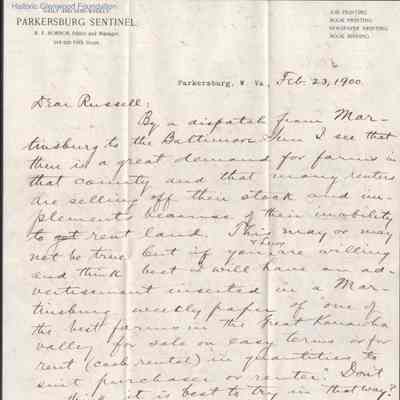 Historic Glenwood Foundation
DAILY AND SEMI-WEEKLY
PARKERSBURG SENTINEL.
R. E. HORNOR, Editor and Manager.
Fifth Street.
JOB PRINTING
BOOK PRINTING
NEWSPAPER PRINTING
BOOK BINDING
Parkersburg, W. Va., Feb. 23, 1900.
Dear Russell:
By a dispatch from Mar-
tinsburg to the Baltimore Sun I see that
there is a great demand for farms in
that county and that many renters
are selling off their stock and im-
plements because of their inability
to get rent land. This may or may
not be true but if you & are willing
and think best I will have an ad-
vertisement inserted in a Mar-
tinsburg weekly paper of "one of
the best farms in the Great Kanawha
valley for sale on easy terms or for
rent (cash rental) in quantities to
suit purchaser or renter." Don't
it is best to try in that way?